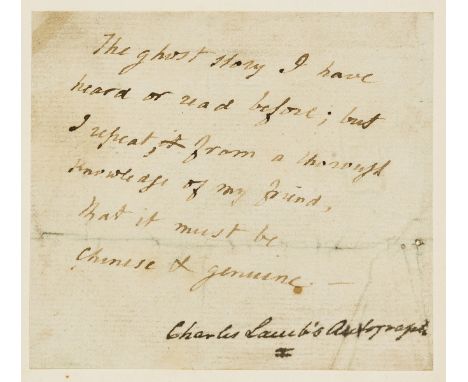 The ghost story I have
heard or read before; but
I repeat, & from a thorough
knowledge of my friend,
that it must be
Chinese & genuine. —
Charles Lamb's Autograph